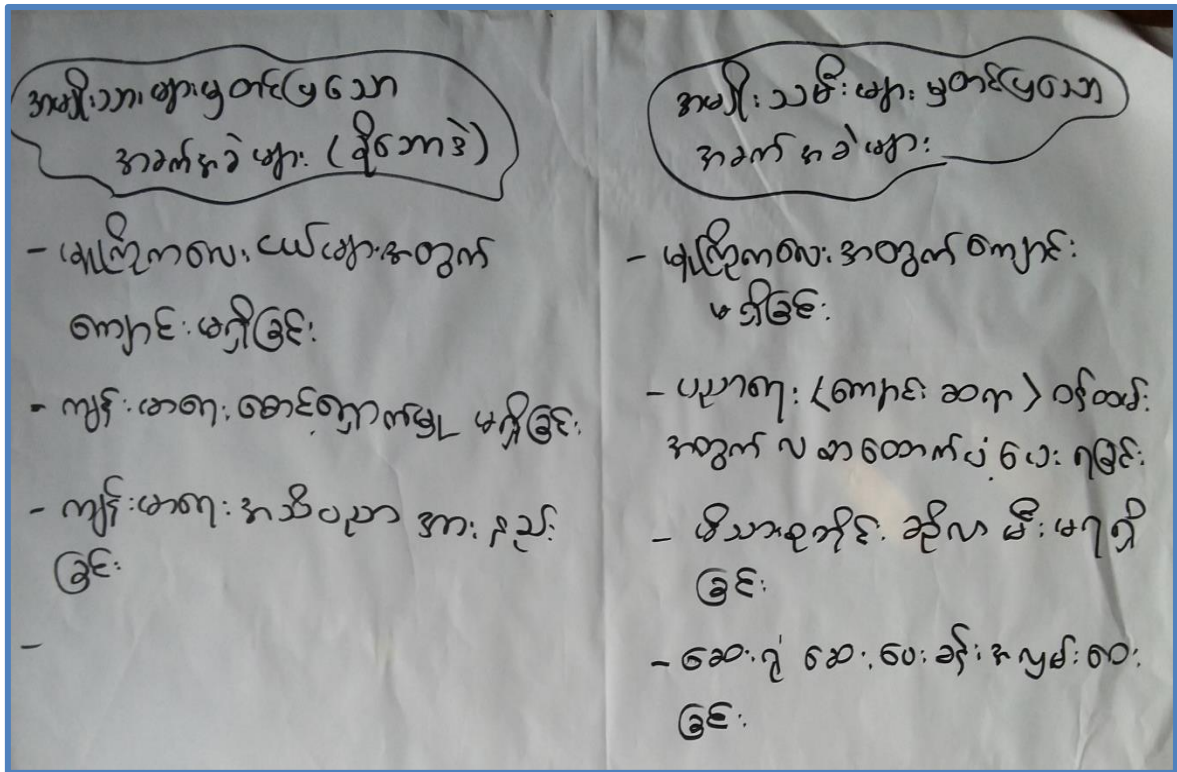 အမျိုးသားများမှတင်ပြသော
အခက်အခဲများ (ခိုဘောဒဲ)
- မူကြိုကလေးငယ်များအတွက်
ကျောင်းမရှိခြင်း
- ကျန်းမာရေးစောင့်ရှောက်မှု မရှိခြင်း
- ကျန်းမာရေးအသိပညာ အားနည်း
ခြင်း
-
အမျိုးသမီးများမှတင်ပြသော
အခက်အခဲများ
- မူကြိုကလေးအတွက် ကျောင်း
မရှိခြင်း
- ပညာရေး (ကျောင်းဆရာ) ဝန်ထမ်း
အတွက် လစာထောက်ပံ့ပေးရခြင်း
- မိသားစုတိုင်း ဆိုလာမီးမရရှိ
ခြင်း
- ဆေးရုံ ဆေးပေးခန်းအလှမ်းဝေး
ခြင်း